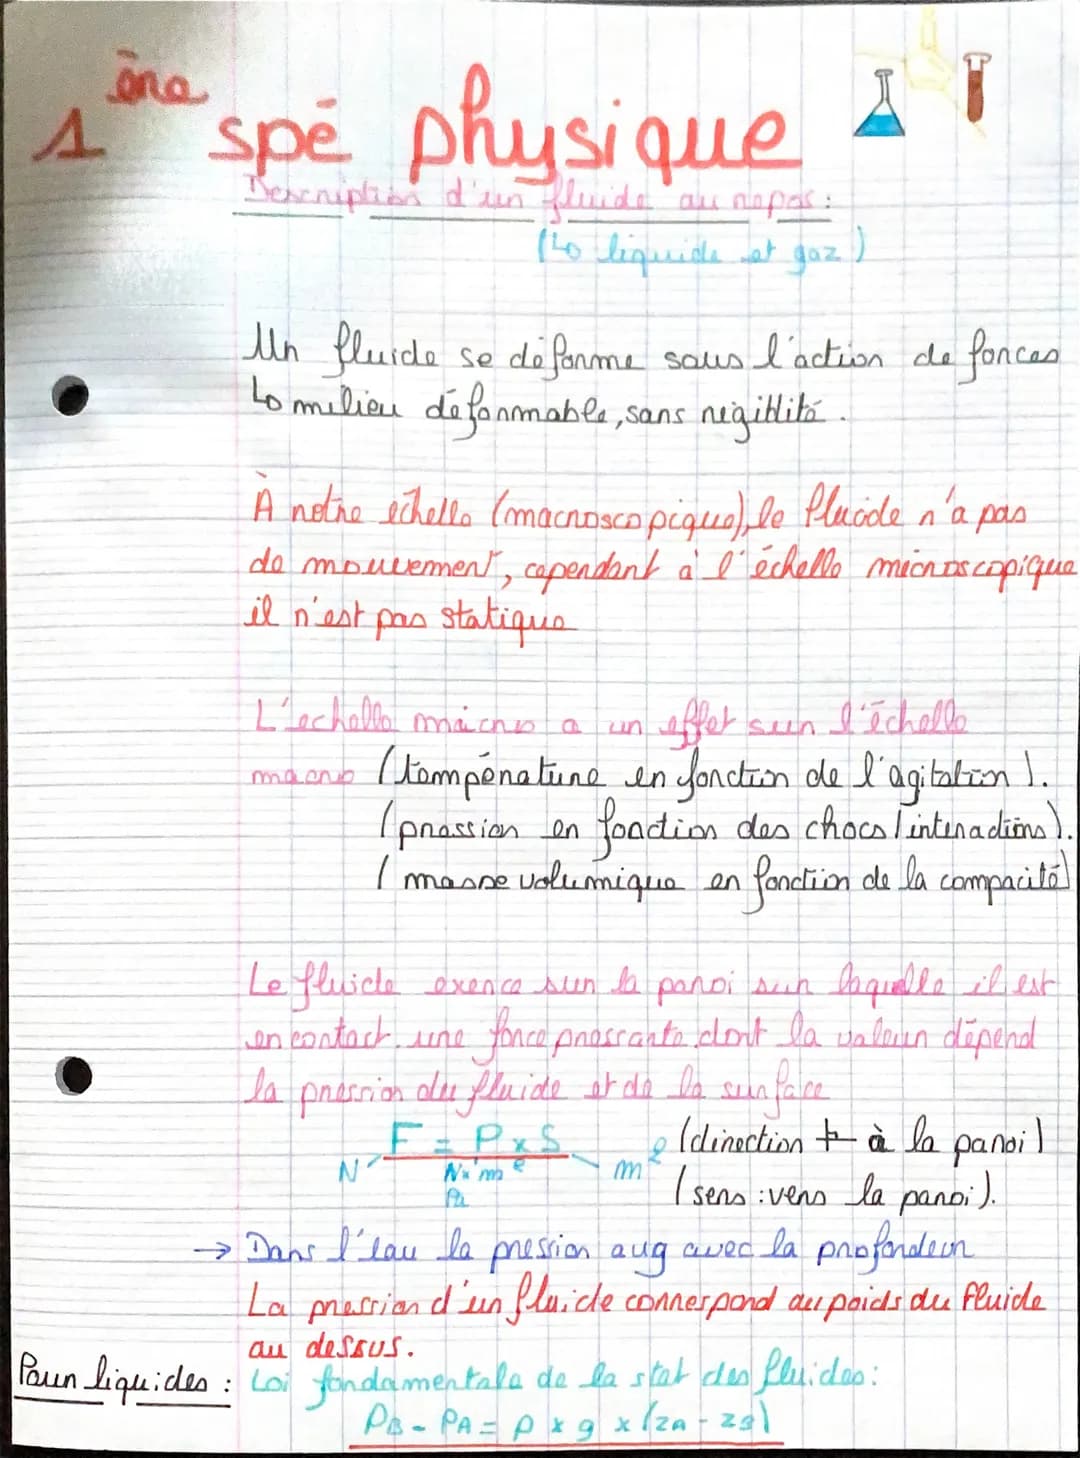 1ère spé physique
Description d'un fluide au repos :
(↳ liquide et gaz)
Un fluide se déforme sous l'action de forces
↳ milieu déformable, sans rigidité.
À notre échelle (macroscopique), le fluide n'a pas
de mouvement, cependant à l'échelle microscopique
il n'est pas statique
L'echelle micro a un effet sur l'échelle
macro (température en fonction de l'agitation).
(pression en fonction des chocs / interactions).
(masse volumique en fonction de la compacité)
Le fluide exerce sur la paroi sur laquelle il est
en contact une force pressante dont la valeur dépend
la pression du fluide et de la surface
F = P x S (direction ⊥ à la paroi)
N m²
Pa (sens : vers la paroi).
→ Dans l'eau la pression aug avec la profondeur
La pression d'un fluide correspond au poids du fluide
au dessus.
Pour liquides : Loi fondamentale de la stat des fluides :
PB - PA = ρ x g x (zA - zB)